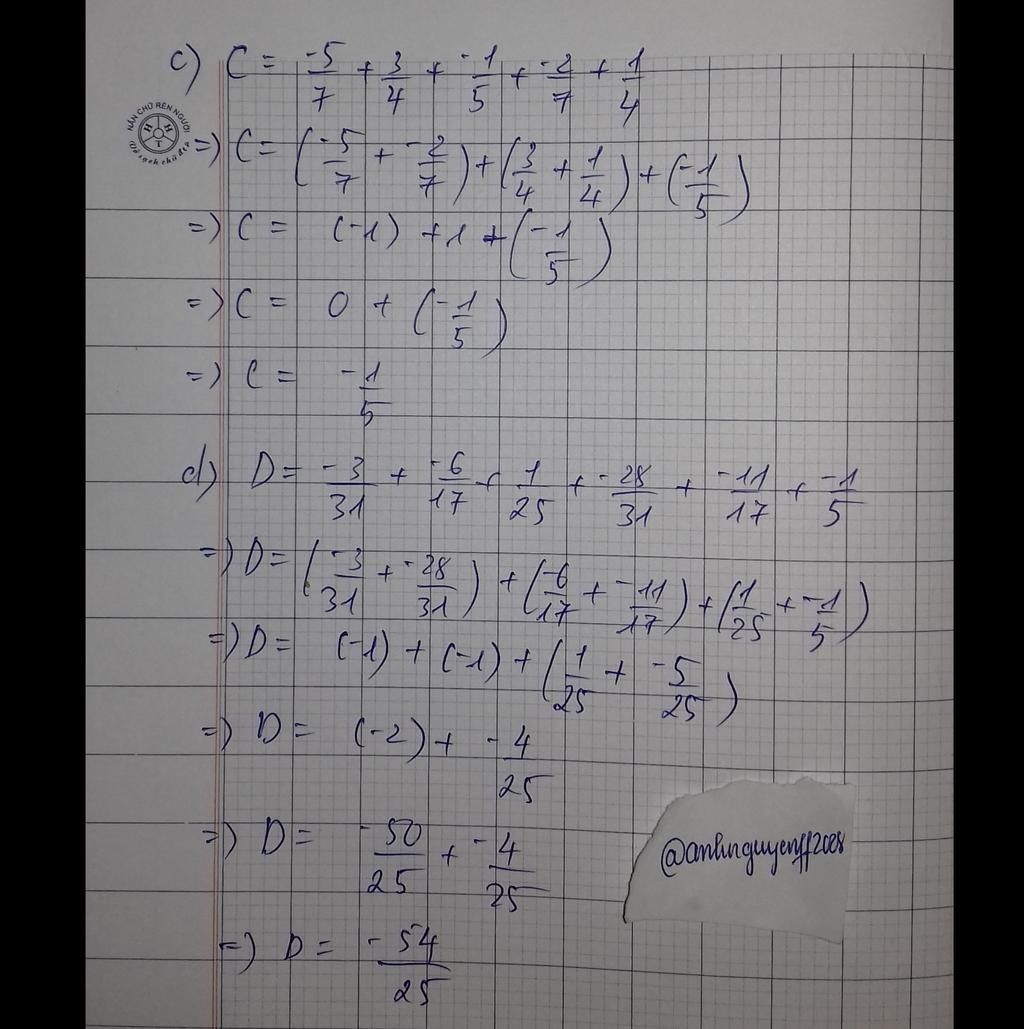 c) C = -5/7 + 3/4 + -1/5 + -2/7 + 1/4
NẮN CHỮ RÈN NGƯỜI
H H T
=) C = (-5/7 + -2/7) + (3/4 + 1/4) + (-1/5)
=) C = (-1) + 1 + (-1/5)
=) C = 0 + (-1/5)
=) C = -1/5
d) D = -3/31 + -6/17 + 1/25 + -28/31 + -11/17 + -1/5
=) D = (-3/31 + -28/31) + (-6/17 + -11/17) + (1/25 + -1/5)
=) D = (-1) + (-1) + (1/25 + -5/25)
=) D = (-2) + -4/25
=) D = -50/25 + -4/25
@anhnguyenff2008
=) D = -54/25